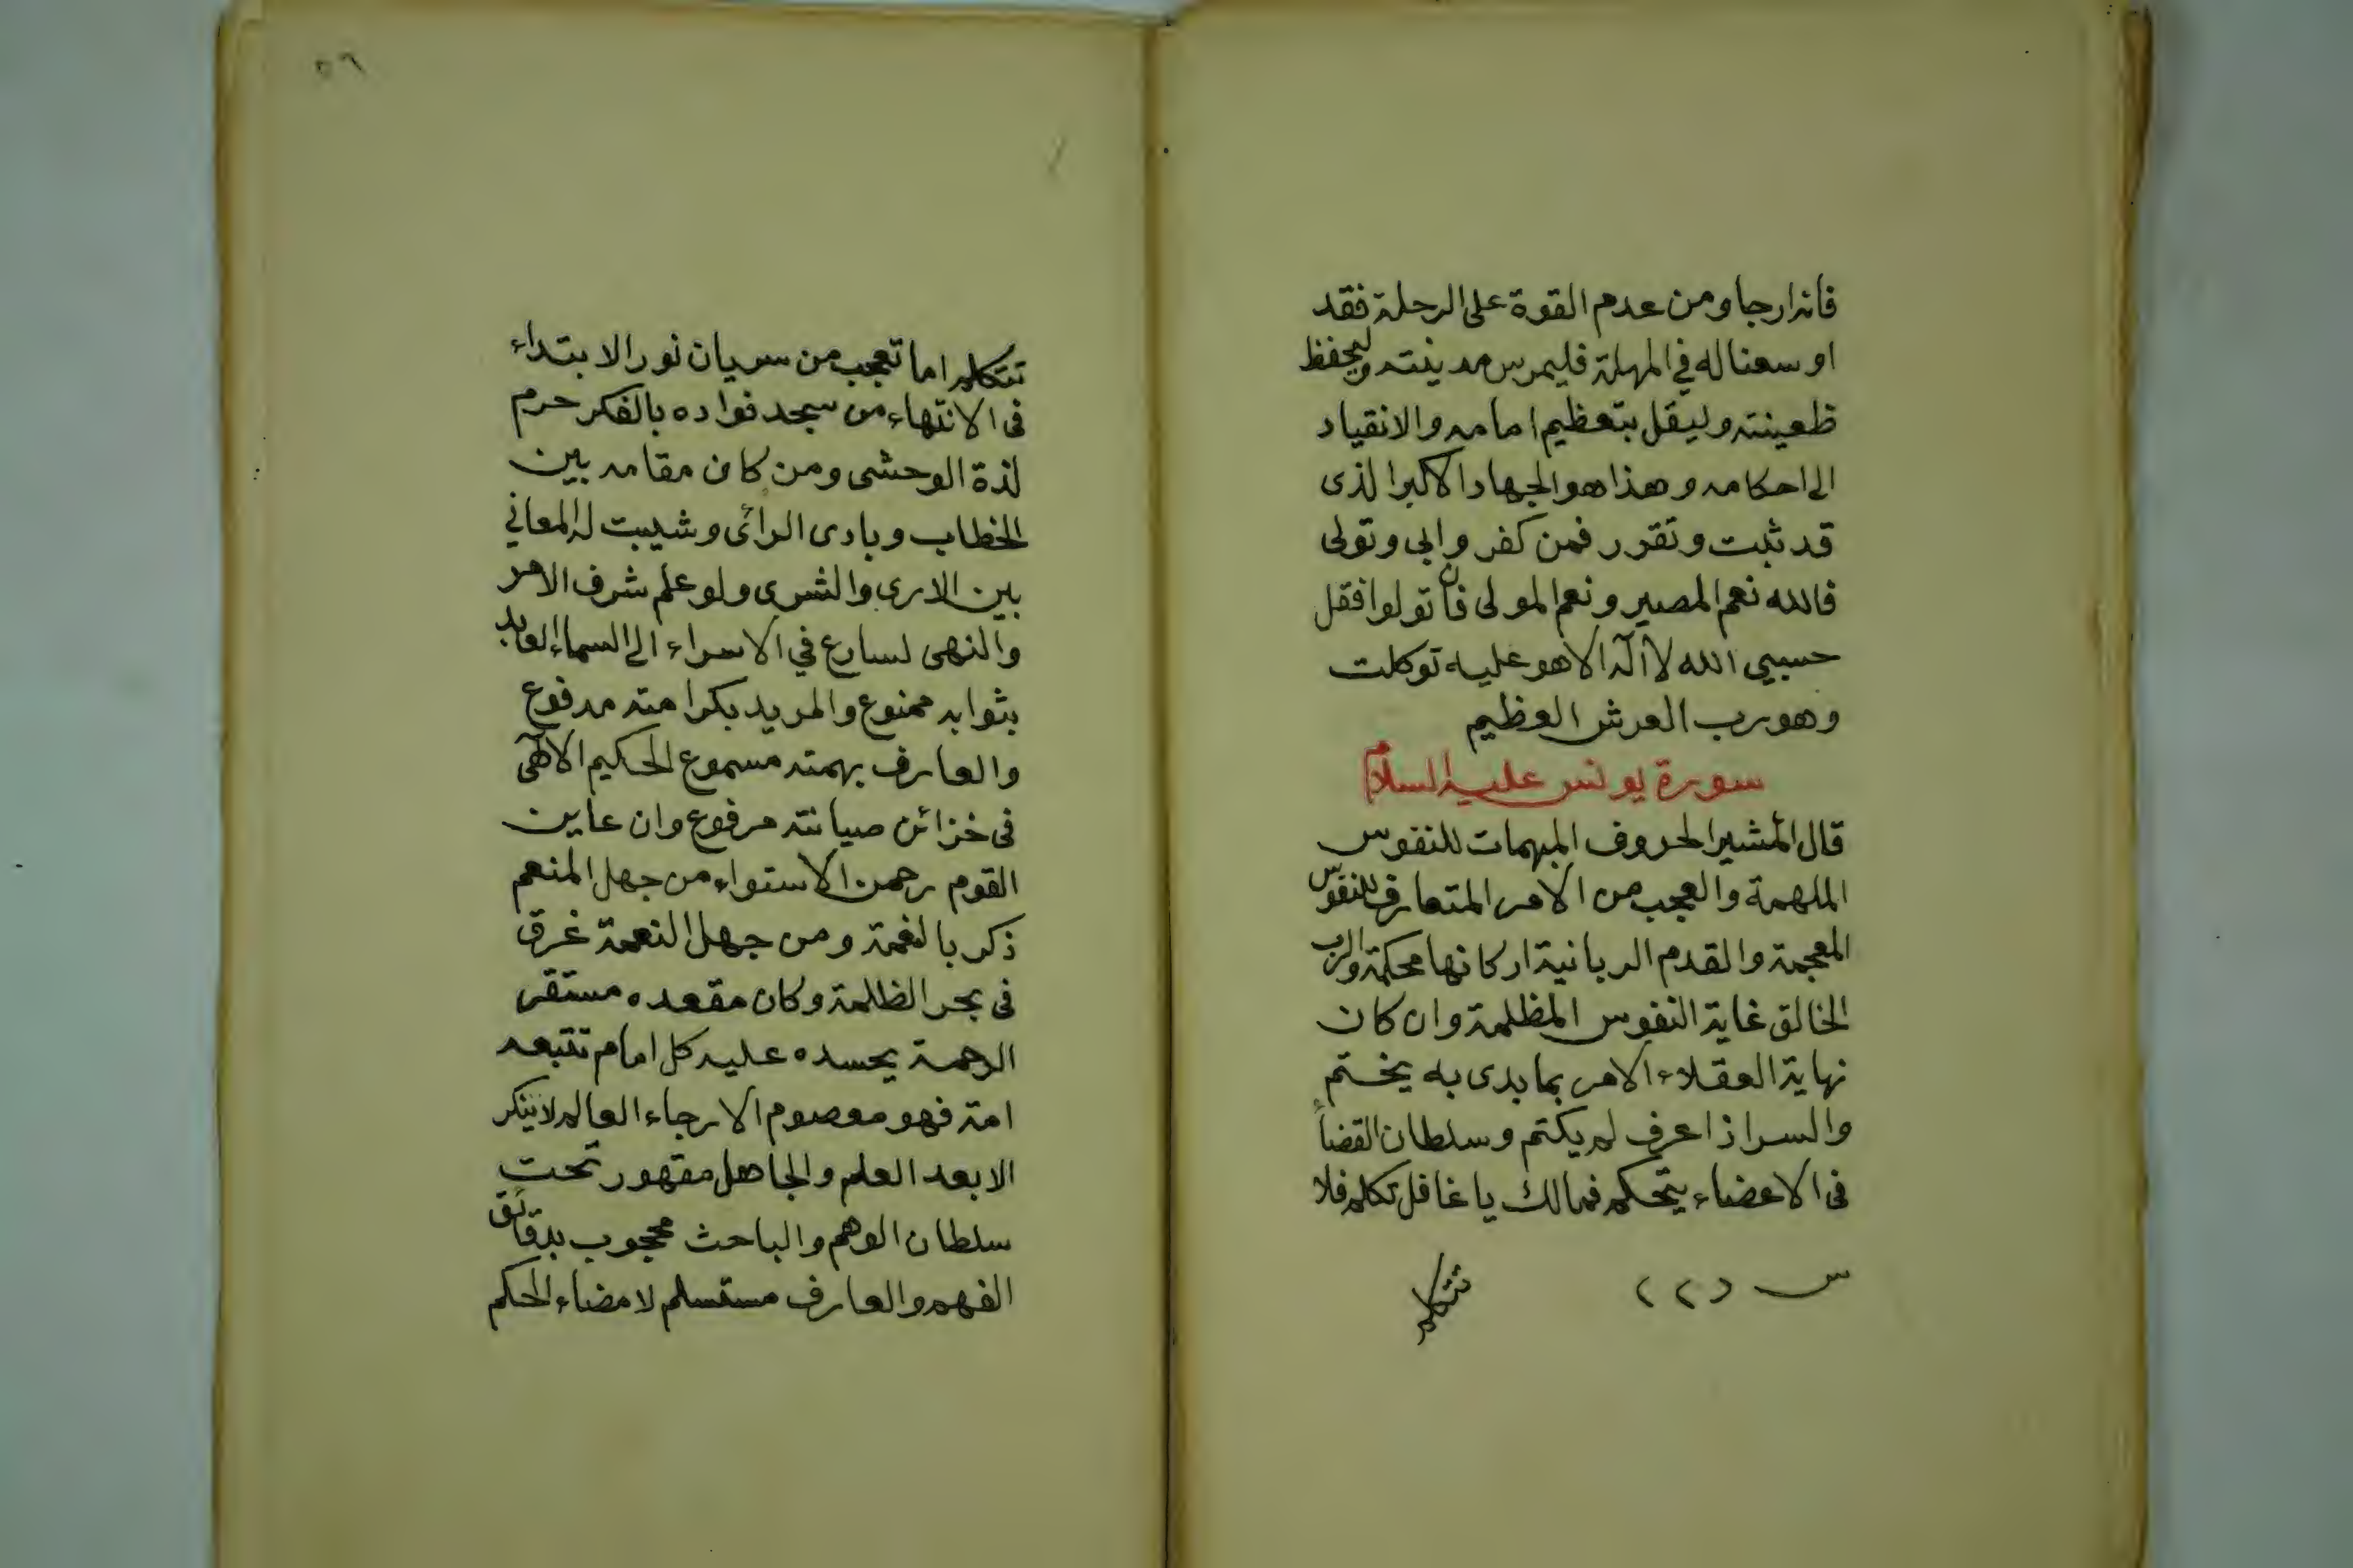 فانه ارجا ومن عدم القوة على الرحلة فقد
اوسعناله في المهلة فليحرس مدينته وليحفظ
ظعينته وليقل بتعظيم امامه والانقياد
الى احكامه وهذا هو الجهاد الاكبر الذى
قد ثبت وتقرر فمن كفر وابى وتولى
فالله نعم المصير ونعم المولى فان تولوا فقل
حسبي الله لا اله الا هو عليه توكلت
وهو رب العرش العظيم
سورة يونس عليه السلام
قال المشير الحروف المبهمات للنفوس
الملهمة والعجب من الامر المتعارف للنفوس
المعجمة والقدم الربانية اركانها محكمة والرب
الخالق غاية النفوس المظلمة وان كان
نهاية العقلاء الامر بما بدى به يختم
والسر اذا عرف لم يكتم وسلطان القضاء
فى الاعضاء يتحكم فمالك يا غافل تكلم فلا
س د٢٢
تتكلم
٥٦
تتكلم اما تعجب من سريان نور الابتداء
فى الانتهاء من سجد فواده بالفكر حرم
لذة الوحشى ومن كان مقامه بين
الخطاب وبادى الرائ وشيبت له المعاني
بين الارى والشرى ولو علم شرف الامر
والنهى لسارع في الاسراء الى السماء العابد
بثوابه ممنوع والمريد بكرامته مدفوع
والعارف بهمته مسموع الحكيم الالهى
فى خزائن صيانته مرفوع وان عاين
القوم رحمن الاستواء من جهل المنعم
ذكر بالنغمة ومن جهل النعمة غرق
فى بحر الظلمة وكان مقعده مستقر
الرحمة يحسده عليه كل امام تتبعه
امته فهو معصوم الارجاء العالم لا ينكر
الا بعد العلم والجاهل مقهور تحت
سلطان الوهم والباحث محجوب بدقائق
الفهم والعارف مستسلم لامضاء الحكم